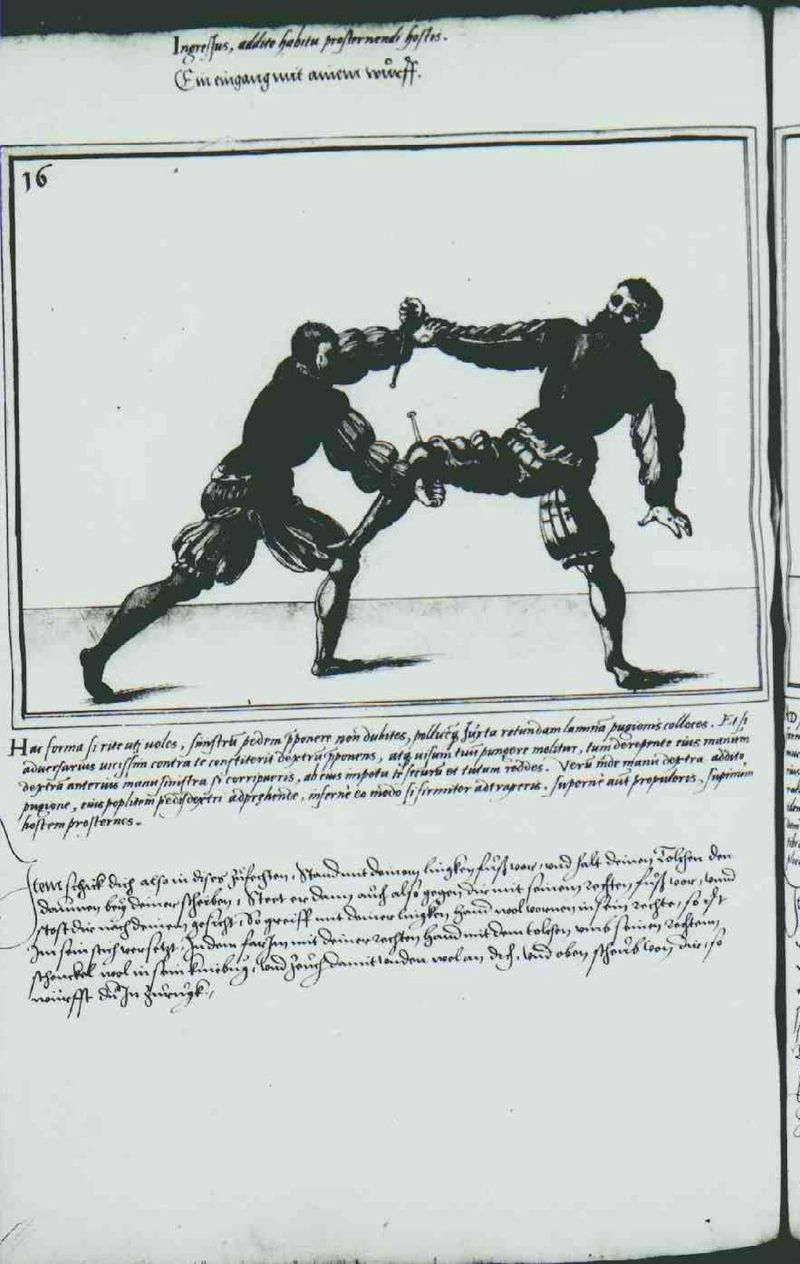 Ingressus, addito habitu prosternendi hostis.
Ein eingang mit ainem wurff.
16
Hac forma si rite uti uoles, sinistrũ pedem ꝓponere non dubites, pollicẽqꝫ iuxta rotundam laminã pugionis colloces. Et si
aduersarius uicissim contra te constiterit dextrũ ꝓponens, atqꝫ uisum tuũ pungere molitur, tum derepente eius manum
dextrã anterius manu sinistra si corripueris, ab eius impetu te securũ et tutum reddes. Verũ inde manu dextra addito
pugione, eius poplitem pedis dextri adprehende, inferne eo modo si firmiter adtraxeris. superne aũt propuleris, supinum
hostem prosternes.
Item schick dich also in dises zufechten, Stand mit deinem lingken fuß vor, und halt deinen Tolchen den
daumen bey deiner scheiben, Steet er dann auch also gegen dir mit seinem rechten fuß vor, unnd
stost dir nach deinem gesicht, So greiff mit deiner lingken hand wol vornen in sein rechte, so ist
Im sein stich versetzt, Indem far Im mit deiner rechten hand mit dem tolchen umb seinen rechten
schenckel wol in sein kniebug, und zeuch damit unden wol an dich, und oben scheub von dir, so
wurffst du In zuruck.